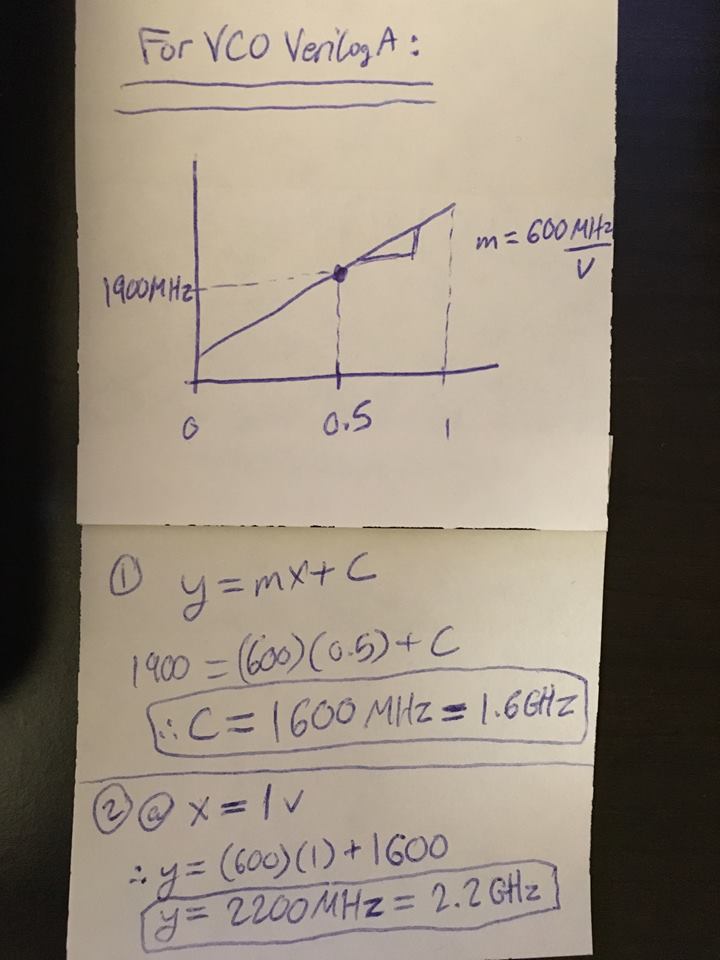 For VCO VerilogA:
m = 600 MHz/V
1900MHz
0 0.5 1
① y = mx + C
1900 = (600)(0.5) + C
∴ C = 1600 MHz = 1.6GHz
② @ x = 1v
∴ y = (600)(1) + 1600
y = 2200MHz = 2.2GHz